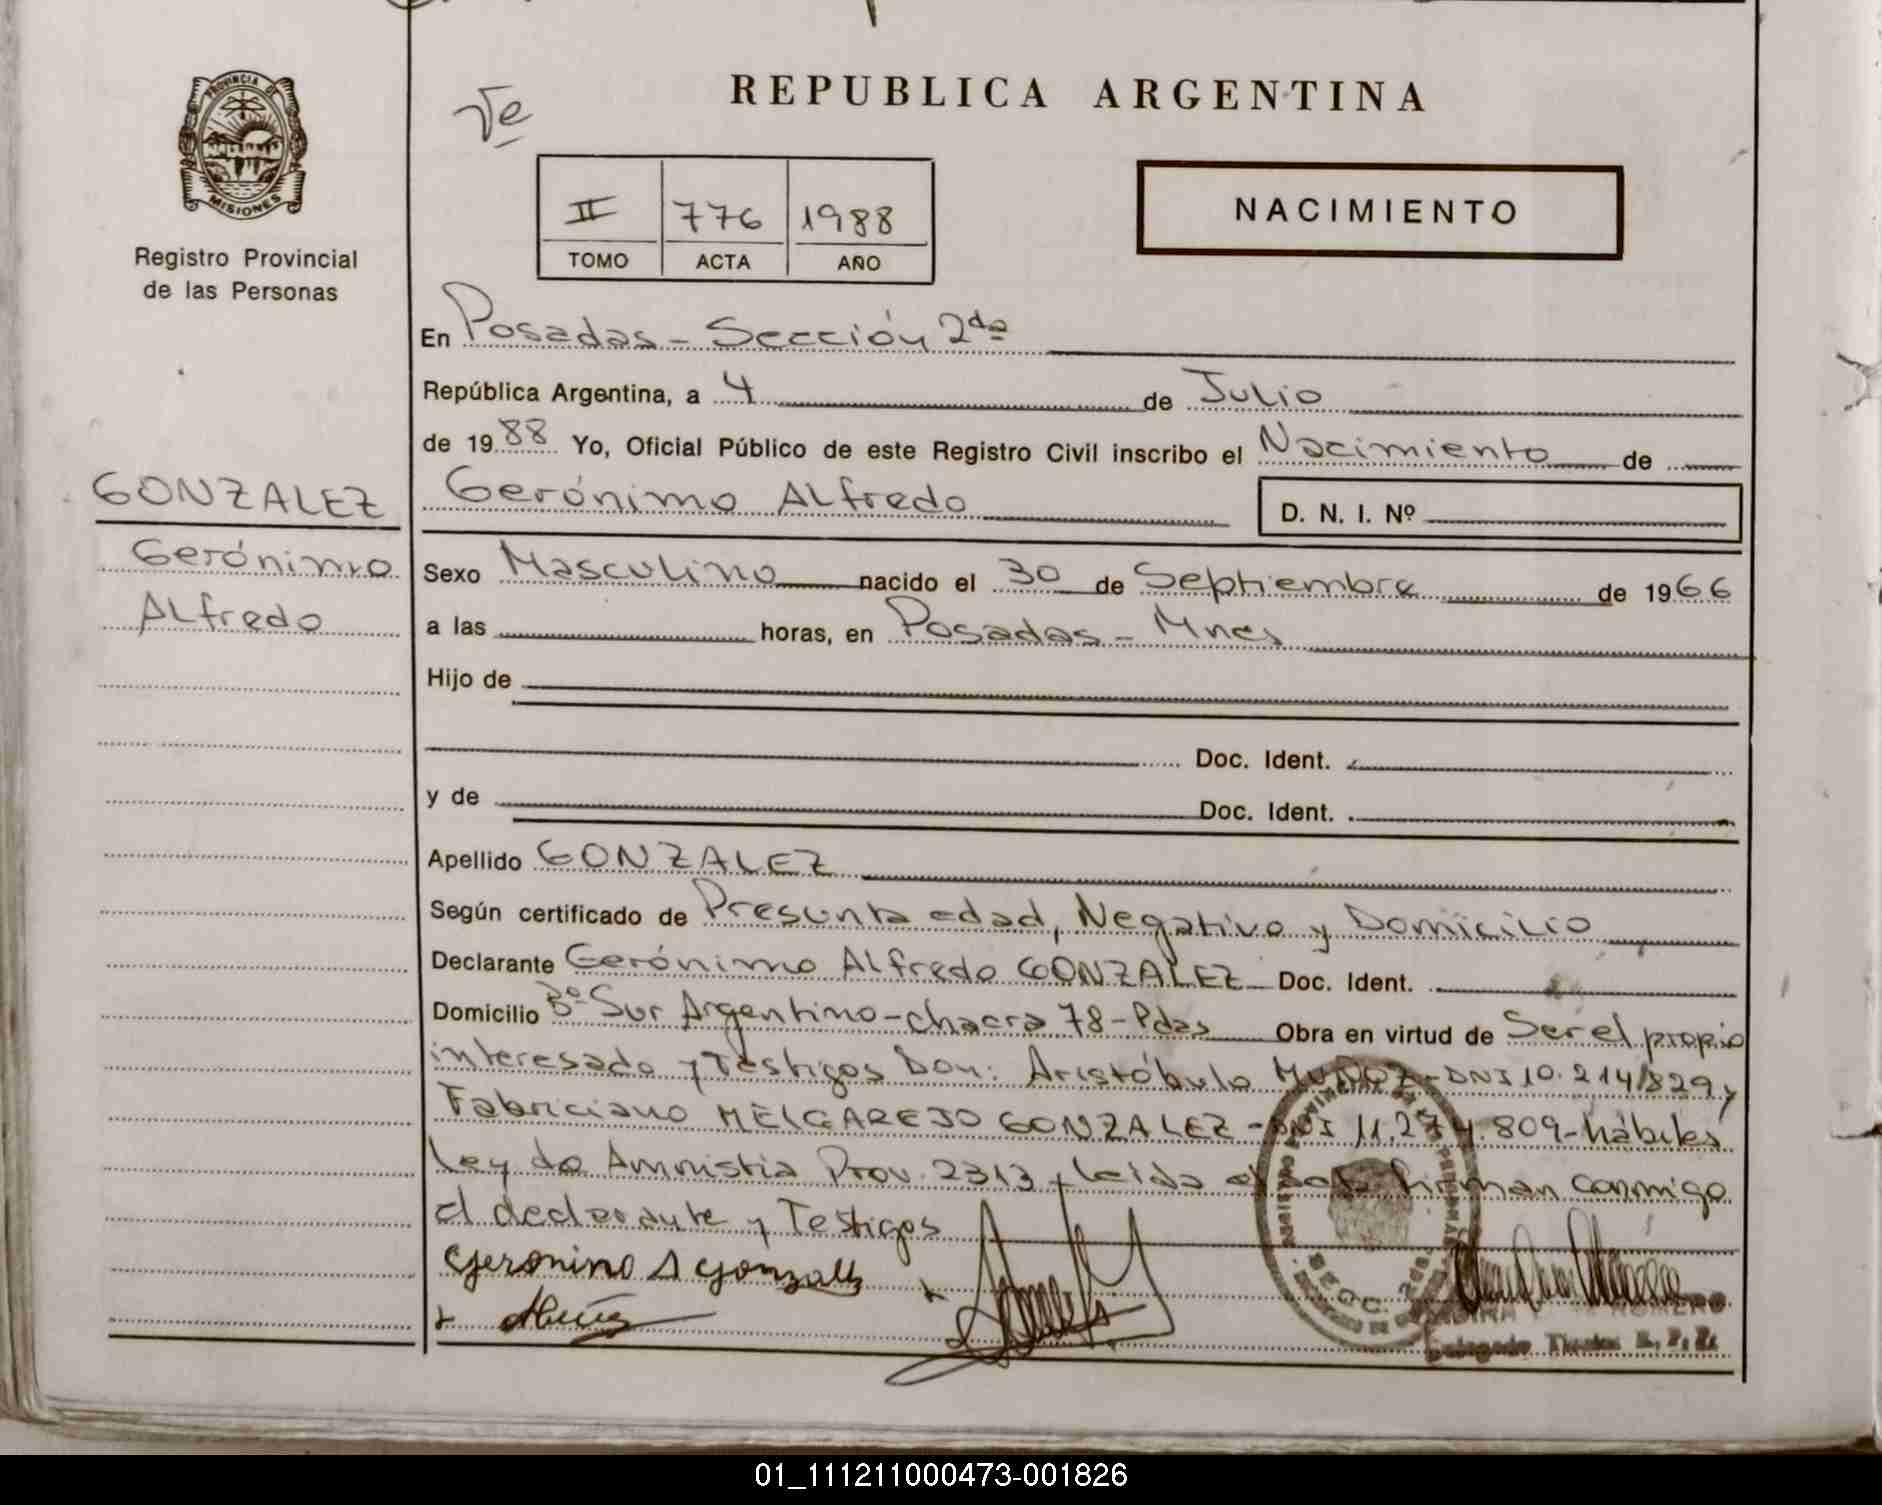 REPUBLICA ARGENTINA
PROVINCIA DE
MISIONES
Registro Provincial
de las Personas
Ve
II 776 1988
TOMO ACTA AÑO
NACIMIENTO
En Posadas - Sección 2da
República Argentina, a 4 de Julio
de 1988 Yo, Oficial Público de este Registro Civil inscribo el Nacimiento de
GONZALEZ
Gerónimo Alfredo
Gerónimo Alfredo D. N. I. Nº
Sexo Masculino nacido el 30 de Septiembre de 1966
a las horas, en Posadas - Mnes
Hijo de
Doc. Ident.
y de Doc. Ident.
Apellido GONZALEZ
Según certificado de Presunta edad, Negativo y Domicilio
Declarante Gerónimo Alfredo GONZALEZ Doc. Ident.
Domicilio Bº Sur Argentino - chacra 78 - Pdas Obra en virtud de Ser el propio
interesado y Testigos Don: Aristóbulo MUÑOZ - DNI 10.214.829 y
Fabriciano MELGAREJO GONZALEZ - DNI 11.274.809 - hábiles
Ley de Amnistia Prov. 2313, leida el acta firman conmigo
el declarante y Testigos
Geronimo A Gonzalez
SECC. 2da.
Delegado Titular R. P. P.
01_111211000473-001826